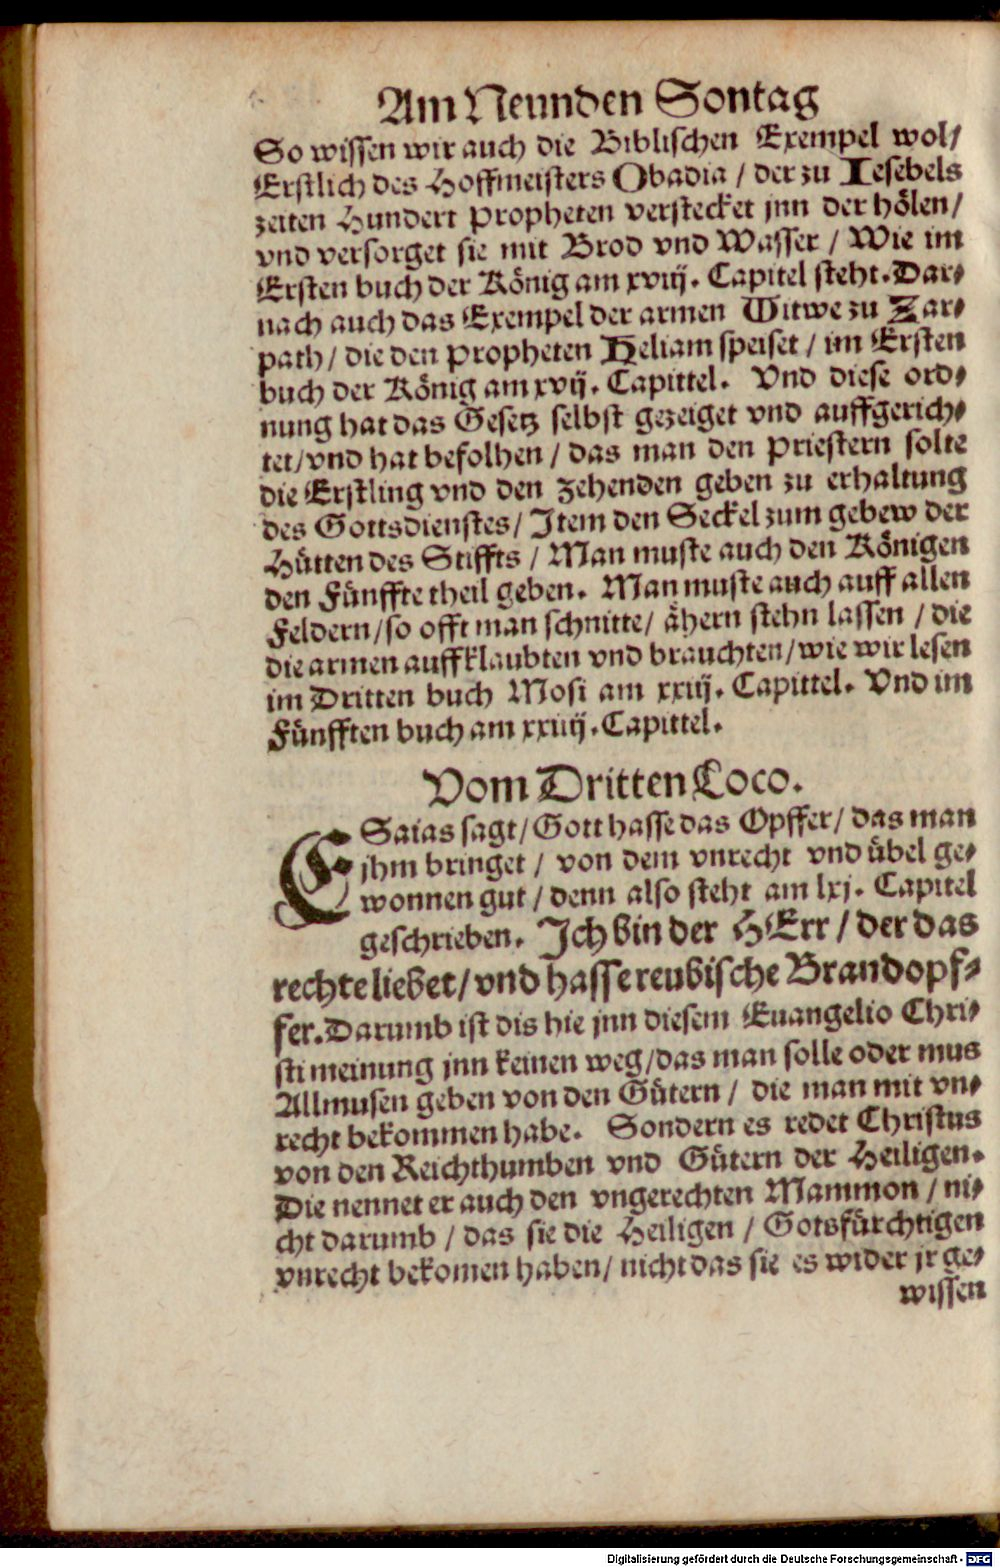 Am Neunden Sontag
So wissen wir auch die Biblischen Exempel wol/
Erstlich des Hoffmeisters Obadia / der zu Jesebels
zeiten Hundert Propheten verstecket jnn der hölen/
vnd versorget sie mit Brod vnd Wasser / Wie im
Ersten buch der König am xviij. Capitel steht. Dar⸗
nach auch das Exempel der armen Witwe zu Zar⸗
path / die den Propheten Heliam speiset / im Ersten
buch der König am xvij. Capittel. Vnd diese ord⸗
nung hat das Gesetz selbst gezeiget vnd auffgerich⸗
tet/vnd hat befolhen / das man den Priestern solte
die Erstling vnd den zehenden geben zu erhaltung
des Gottsdienstes/ Item den Seckel zum gebew der
Hütten des Stiffts / Man muste auch den Königen
den Fünffte theil geben. Man muste auch auff allen
Feldern/so offt man schnitte/ ähern stehn lassen / die
die armen auffklaubten vnd brauchten/wie wir lesen
im Dritten buch Mosi am xxiij. Capittel. Vnd im
Fünfften buch am xxiiij. Capittel.
Vom Dritten Loco.
ESaias sagt/ Gott hasse das Opffer/ das man
jhm bringet / von dem vnrecht vnd übel ge⸗
wonnen gut / denn also steht am lxj. Capitel
geschrieben. Ich bin der HErr / der das
rechte liebet/ vnd hasse reubische Brandopf⸗
fer. Darumb ist dis hie jnn diesem Euangelio Chri⸗
sti meinung jnn keinen weg/das man solle oder mus
Allmusen geben von den Gütern / die man mit vn⸗
recht bekommen habe. Sondern es redet Christus
von den Reichthumben vnd Gütern der Heiligen.
Die nennet er auch den vngerechten Mammon / ni⸗
cht darumb / das sie die Heiligen / Gotsfürchtigen
vnrecht bekomen haben/ nicht das sie es wider jr ge⸗
wissen
Digitalisierung gefördert durch die Deutsche Forschungsgemeinschaft - DFG